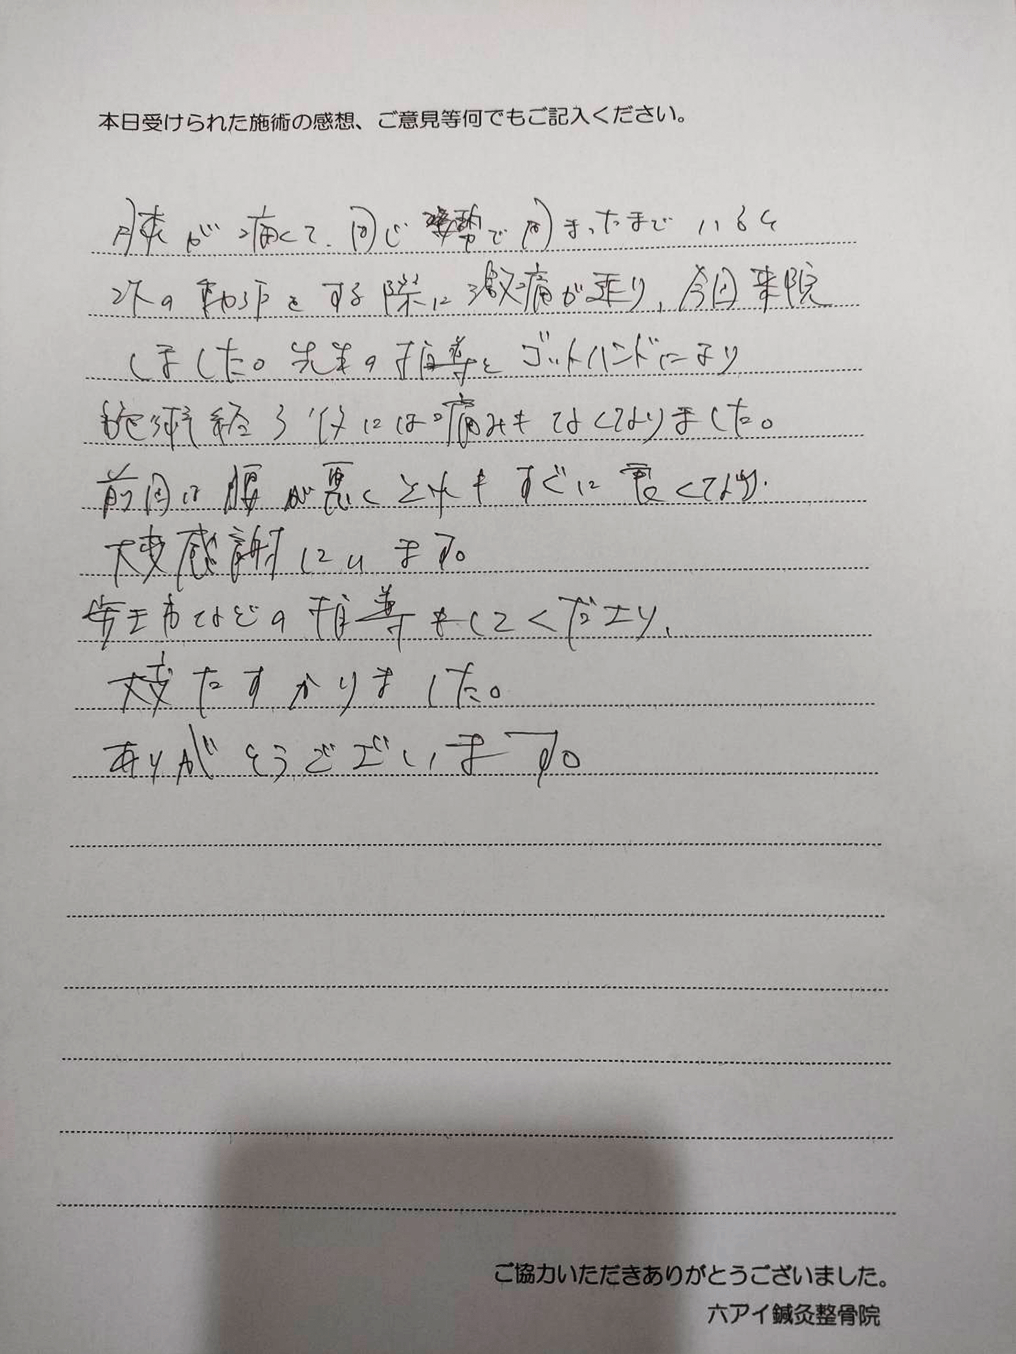 本日受けられた施術の感想、ご意見等何でもご記入ください。
膝が痛くて、同じ姿勢で固まったままでいると
次の動作をする際に激痛が走り、今回来院
しました。先生の指導とゴットハンドにより
施術終了後には痛みもなくなりました。
前回は腰が悪くそれもすぐに良くなり、
大変感謝しています。
などの指導もしてくださり、
大変たすかりました。
ありがとうございます。
ご協力いただきありがとうございました。
六アイ鍼灸整骨院